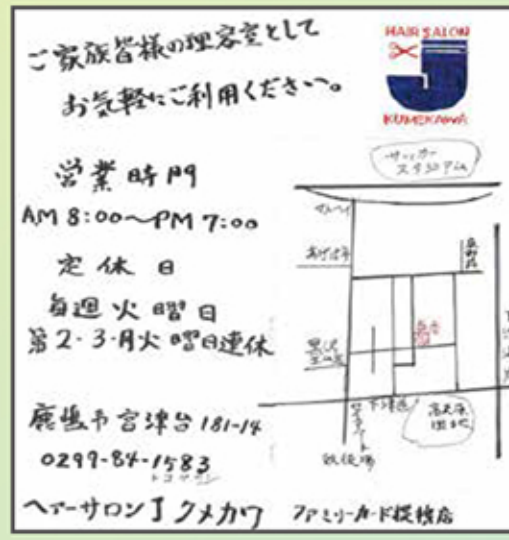 ご家族皆様の理容室として
お気軽にご利用ください。
HAIR SALON
KUMEKAWA
営業時門
AM 8:00〜PM 7:00
定休日
毎週火曜日
第2・3・月火曜日連休
鹿嶋市宮津台181-14
0299-84-1583
トコヤサン
ヘアーサロンJクメカワ
ファミリーカード提携店
サッカー
スタジアム
高天原
団地
下津区